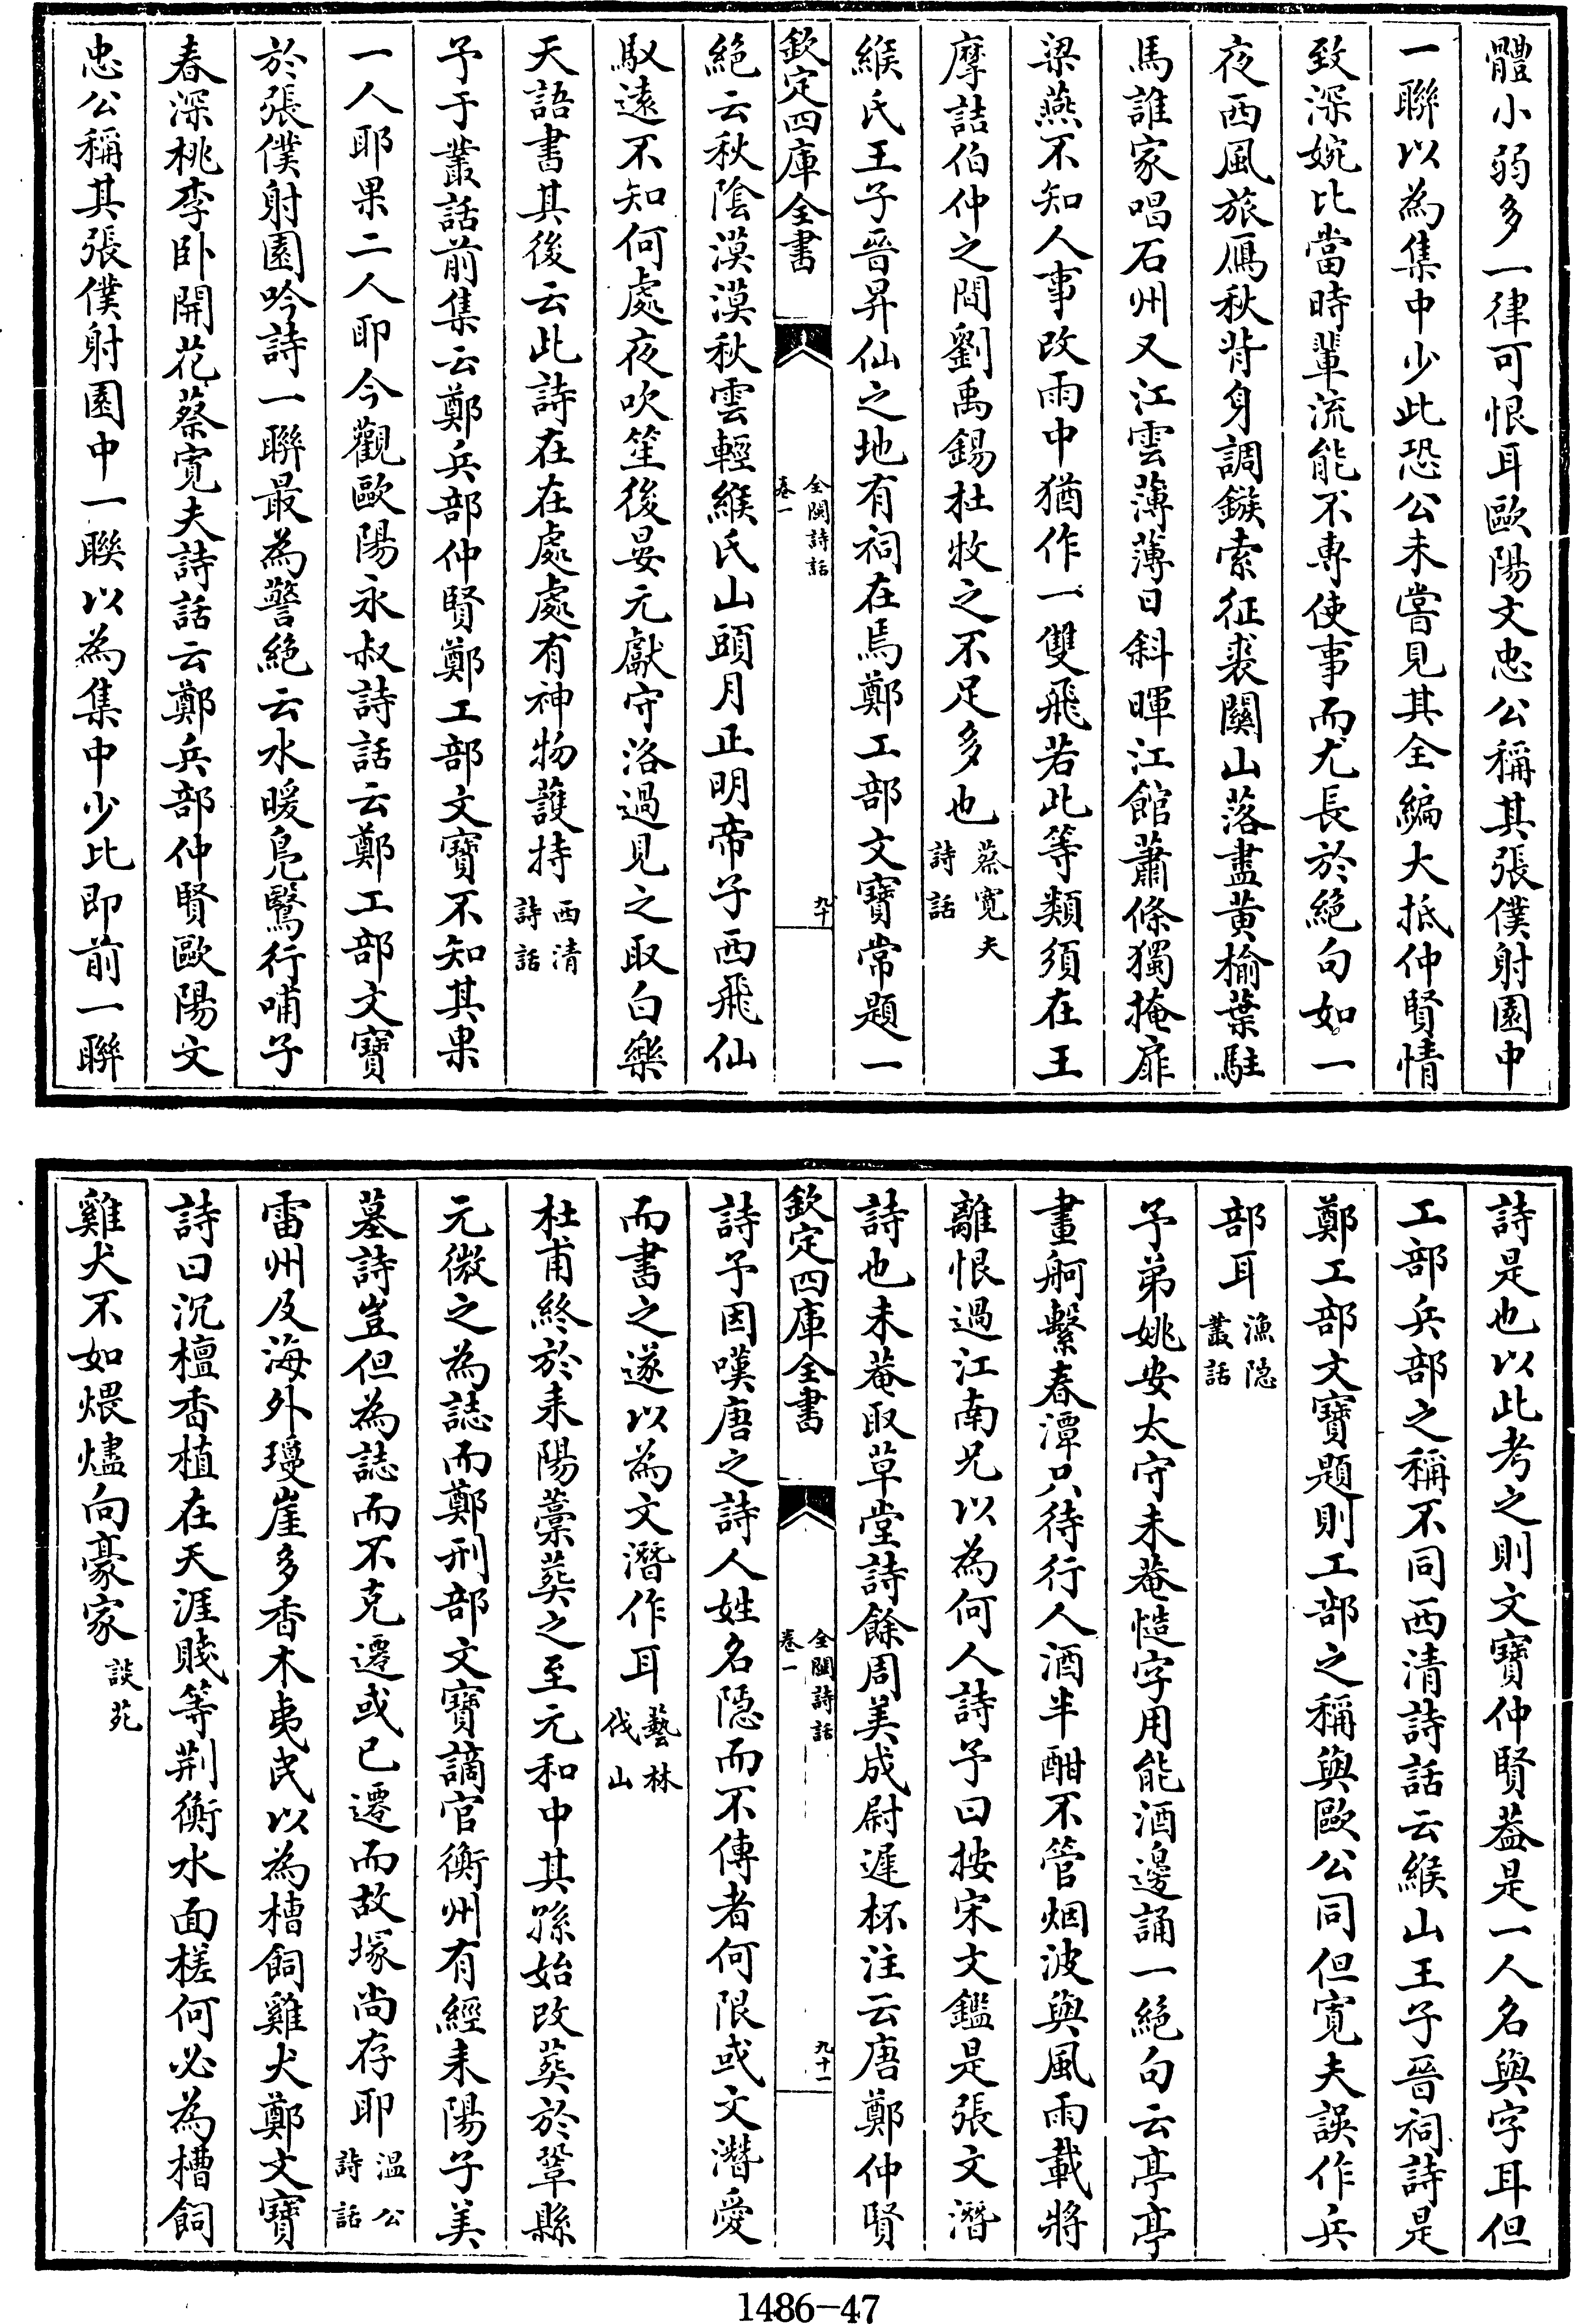 體小弱多一律可恨耳歐陽文忠公稱其張僕射園中
一聯以為集中少此恐公未嘗見其全編大抵仲賢情
致深婉比當時輩流能不專使事而尤長於絶句如一
夜西風旅鴈秋背身調鏃索征裘關山落盡黄榆葉駐
馬誰家唱石州又江雲薄薄日斜暉江館蕭條獨掩扉
梁燕不知人事改雨中猶作一雙飛若此等類須在王
摩詰伯仲之間劉禹錫杜牧之不足多也蔡寛夫詩話
緱氏王子晉昇仙之地有祠在焉鄭工部文寶常題一
欽定四庫全書
全閩詩話
卷一
九十
絶云秋陰漠漠秋雲輕緱氏山頭月正明帝子西飛仙
馭遠不知何處夜吹笙後晏元獻守洛過見之取白樂
天語書其後云此詩在在處處有神物護持西清詩話
予于叢話前集云鄭兵部仲賢鄭工部文寶不知其果
一人耶果二人耶今觀歐陽永叔詩話云鄭工部文寶
於張僕射園吟詩一聯最為警絶云水暖鳬鷖行哺子
春深桃李卧開花蔡寛夫詩話云鄭兵部仲賢歐陽文
忠公稱其張僕射園中一聯以為集中少比即前一聯
詩是也以此考之則文寶仲賢葢是一人名與字耳但
工部兵部之稱不同西清詩話云緱山王子晉祠詩是
鄭工部文寶題則工部之稱與歐公同但寛夫誤作兵
部耳漁隠叢話
予弟姚安太守未菴慥字用能酒邊誦一絶句云亭亭
畫舸繫春潭只待行人酒半酣不管烟波與風雨載將
離恨過江南兄以為何人詩予曰按宋文鑑是張文潛
詩也未菴取草堂詩餘周美成尉遲杯注云唐鄭仲賢
欽定四庫全書
全閩詩話
卷一
九十一
詩予因嘆唐之詩人姓名隠而不傳者何限或文濳愛
而書之遂以為文潛作耳藝林伐山
杜甫終於耒陽藁葬之至元和中其孫始改葬於鞏縣
元微之為誌而鄭刑部文寶謫官衡州有經耒陽子美
墓詩豈但為誌而不克遷或已遷而故塚尚存耶温公詩話
雷州及海外瓊崖多香木夷民以為槽飼雞犬鄭文寶
詩曰沉檀香植在天涯賤等荆衡水面槎何必為槽飼
雞犬不如煨燼向豪家談苑
1486-47